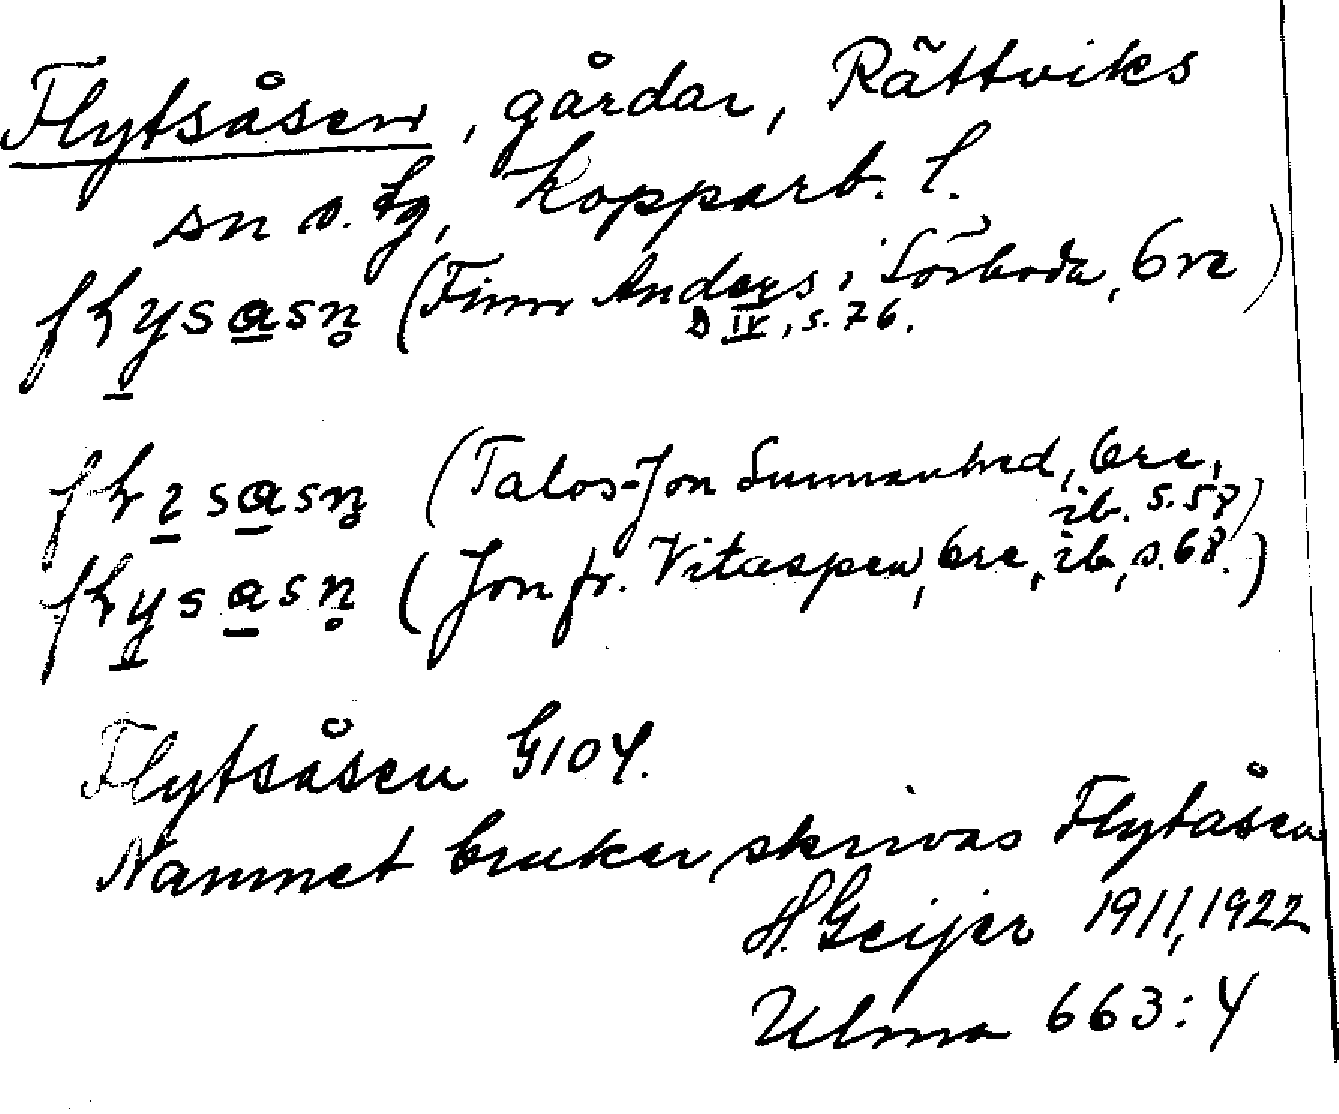 Flytsåsen, gårdar, Rättviks
sn o. tg, Kopparb. l.
flysasn̥ (Finn Anders i Sörboda, Ore)
D IV, s. 76.
(Talos-Jon Sunnanhed, Ore,
ib. s. 58)
flysasn̥ (Jon fr. Vitaspen, Ore, ib, s. 68.)
Flytsåsen G104.
Namnet brukar skrivas Flytåsen
H. Geijer 1911, 1922
Ulma 663:4